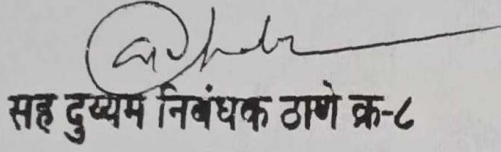 सह दुय्यम निबंधक ठाणे क्र-८